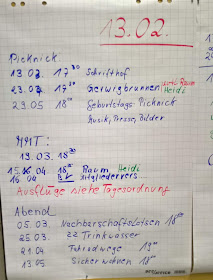 13.02.
Picknick
13.03. 17³⁰ Schrifthof
23.03. 17³⁰ Gerwigbrunnen Raum Heidi
23.05 18⁰⁰ Geburtstags-Picknick
Musik, Presse, Bilder
MMT:
13.03. 18³⁰
15.04 18⁰⁰ Raum Heidi
16 04 Mitgliedervers
Ausflüge siehe Tagesordnung
Abend
05.03. Nachbarschaftslotsen 18⁰⁰
25.03. 22 Trinkwasser
21.04. Fahrradwege 19⁰⁰
13.05 Sicher wohnen 18⁰⁰